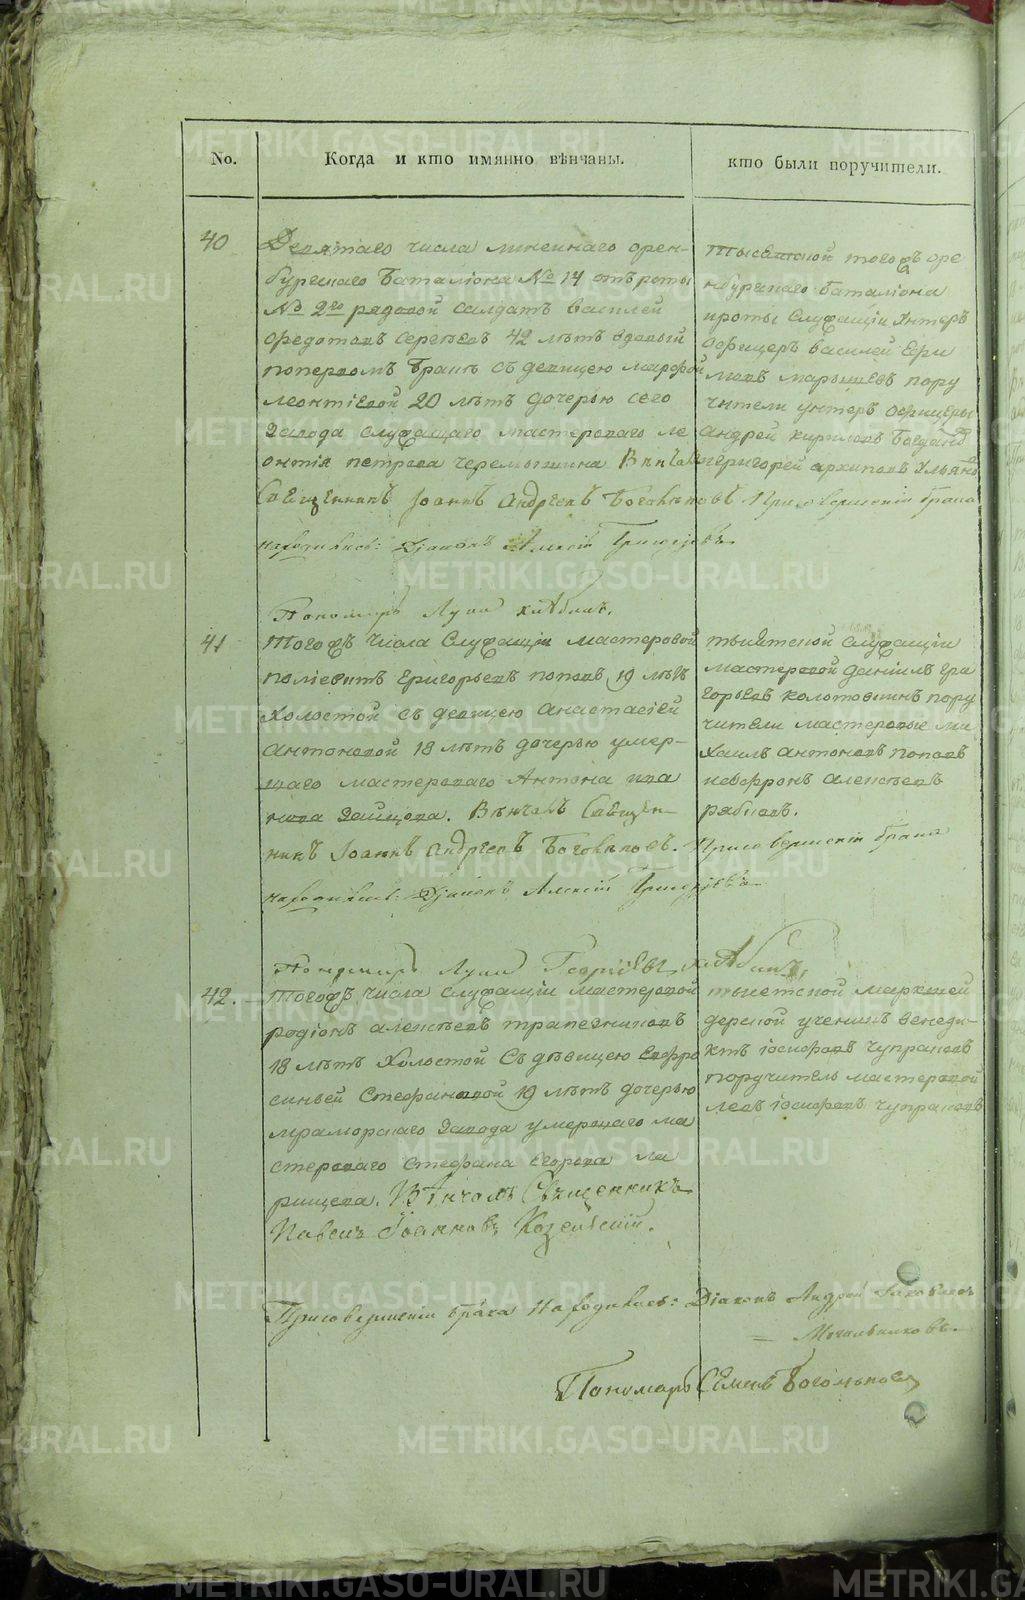 No.
Когда и кто имянно вѣнчаны.
кто были поручители.
40
Девятаго числа линеинаго орен-
бургскаго баталіона № 14 отъ роты
№ 2го рядовой салдатъ василей
федотовъ сергѣевъ 42 лѣтъ вдовый
поперьвомъ бракѣ съ девицею марфой
леонтіевой 20 лѣтъ дочерью сего
завода служащаго мастероваго ле
онтія петрова черемышина Вѣнчалъ
Священникъ Іоаннъ Андреевъ Боговленовъ. При совершеніи брака
находились: Діаконъ Алексій Григорьевъ
тысетской тогожъ оре
нбургскаго баталіона
ироты служащіи Унтеръ
Офицеръ василей
поручители унтеръ Офицеры
Андрей кириловъ Богдановъ
григорей архиповъ
Пономарь Лука
41
тогожъ числа Служащіи мастеровой
поліевктъ григорьевъ поповъ 19 лѣтъ
холостой съ девицею анастасіей
антоновой 18 лѣтъ дочерью умер-
шаго мастероваго Антона ива
нова Зайцова. Вѣнчалъ Священ-
никъ Іоаннъ Андреевъ Боговленовъ. При совершеніи брака
находились: Діаконъ Алексій Григорьевъ
тысятской служащіи
мастеровой даніилъ гри
горьевъ колотовшинъ пору
чители мастеровые ми
хаилъ антоновъ поповъ
алексѣевъ
рябковъ.
Пономарь Лука Георгіевъ
42.
тогожъ числа служащіи мастеровой
родіонъ алексѣевъ трапезниковъ
18 лѣтъ холостой Съ дѣвицею Евфро
синьей Стефановой 19 лѣтъ дочерью
мраморскаго Завода умершаго ма
стероваго Стефана Егорова ла
рицева. Вѣнчалъ Священникъ
Павелъ Іоанновъ Козельскій.
тысетской маркшей
дерской ученикъ венеди-
ктъ іосифовъ чупраковъ
поручитель мастеровой
левъ іосифовъ чупраковъ
При совершеніи брака Находились: Діаконъ Андрей Іаковлевъ
Пономарь Семенъ
METRIKI.GASO-URAL.RU